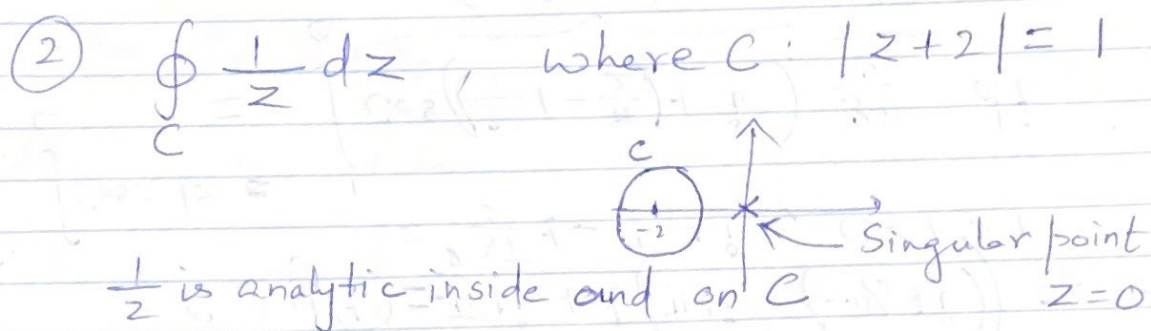 ② ∮ 1/z dz, where C: |z+2| = 1
C
C
-2
Singular point
1/z is analytic inside and on C z=0